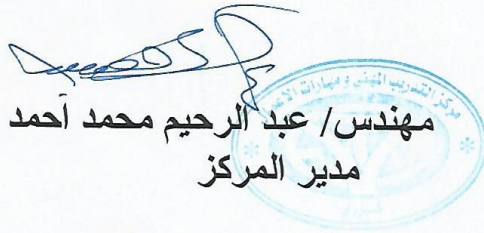 مركز التدريب المهني ومهارات الأعمال
مهندس/ عبد الرحيم محمد أحمد
مدير المركز